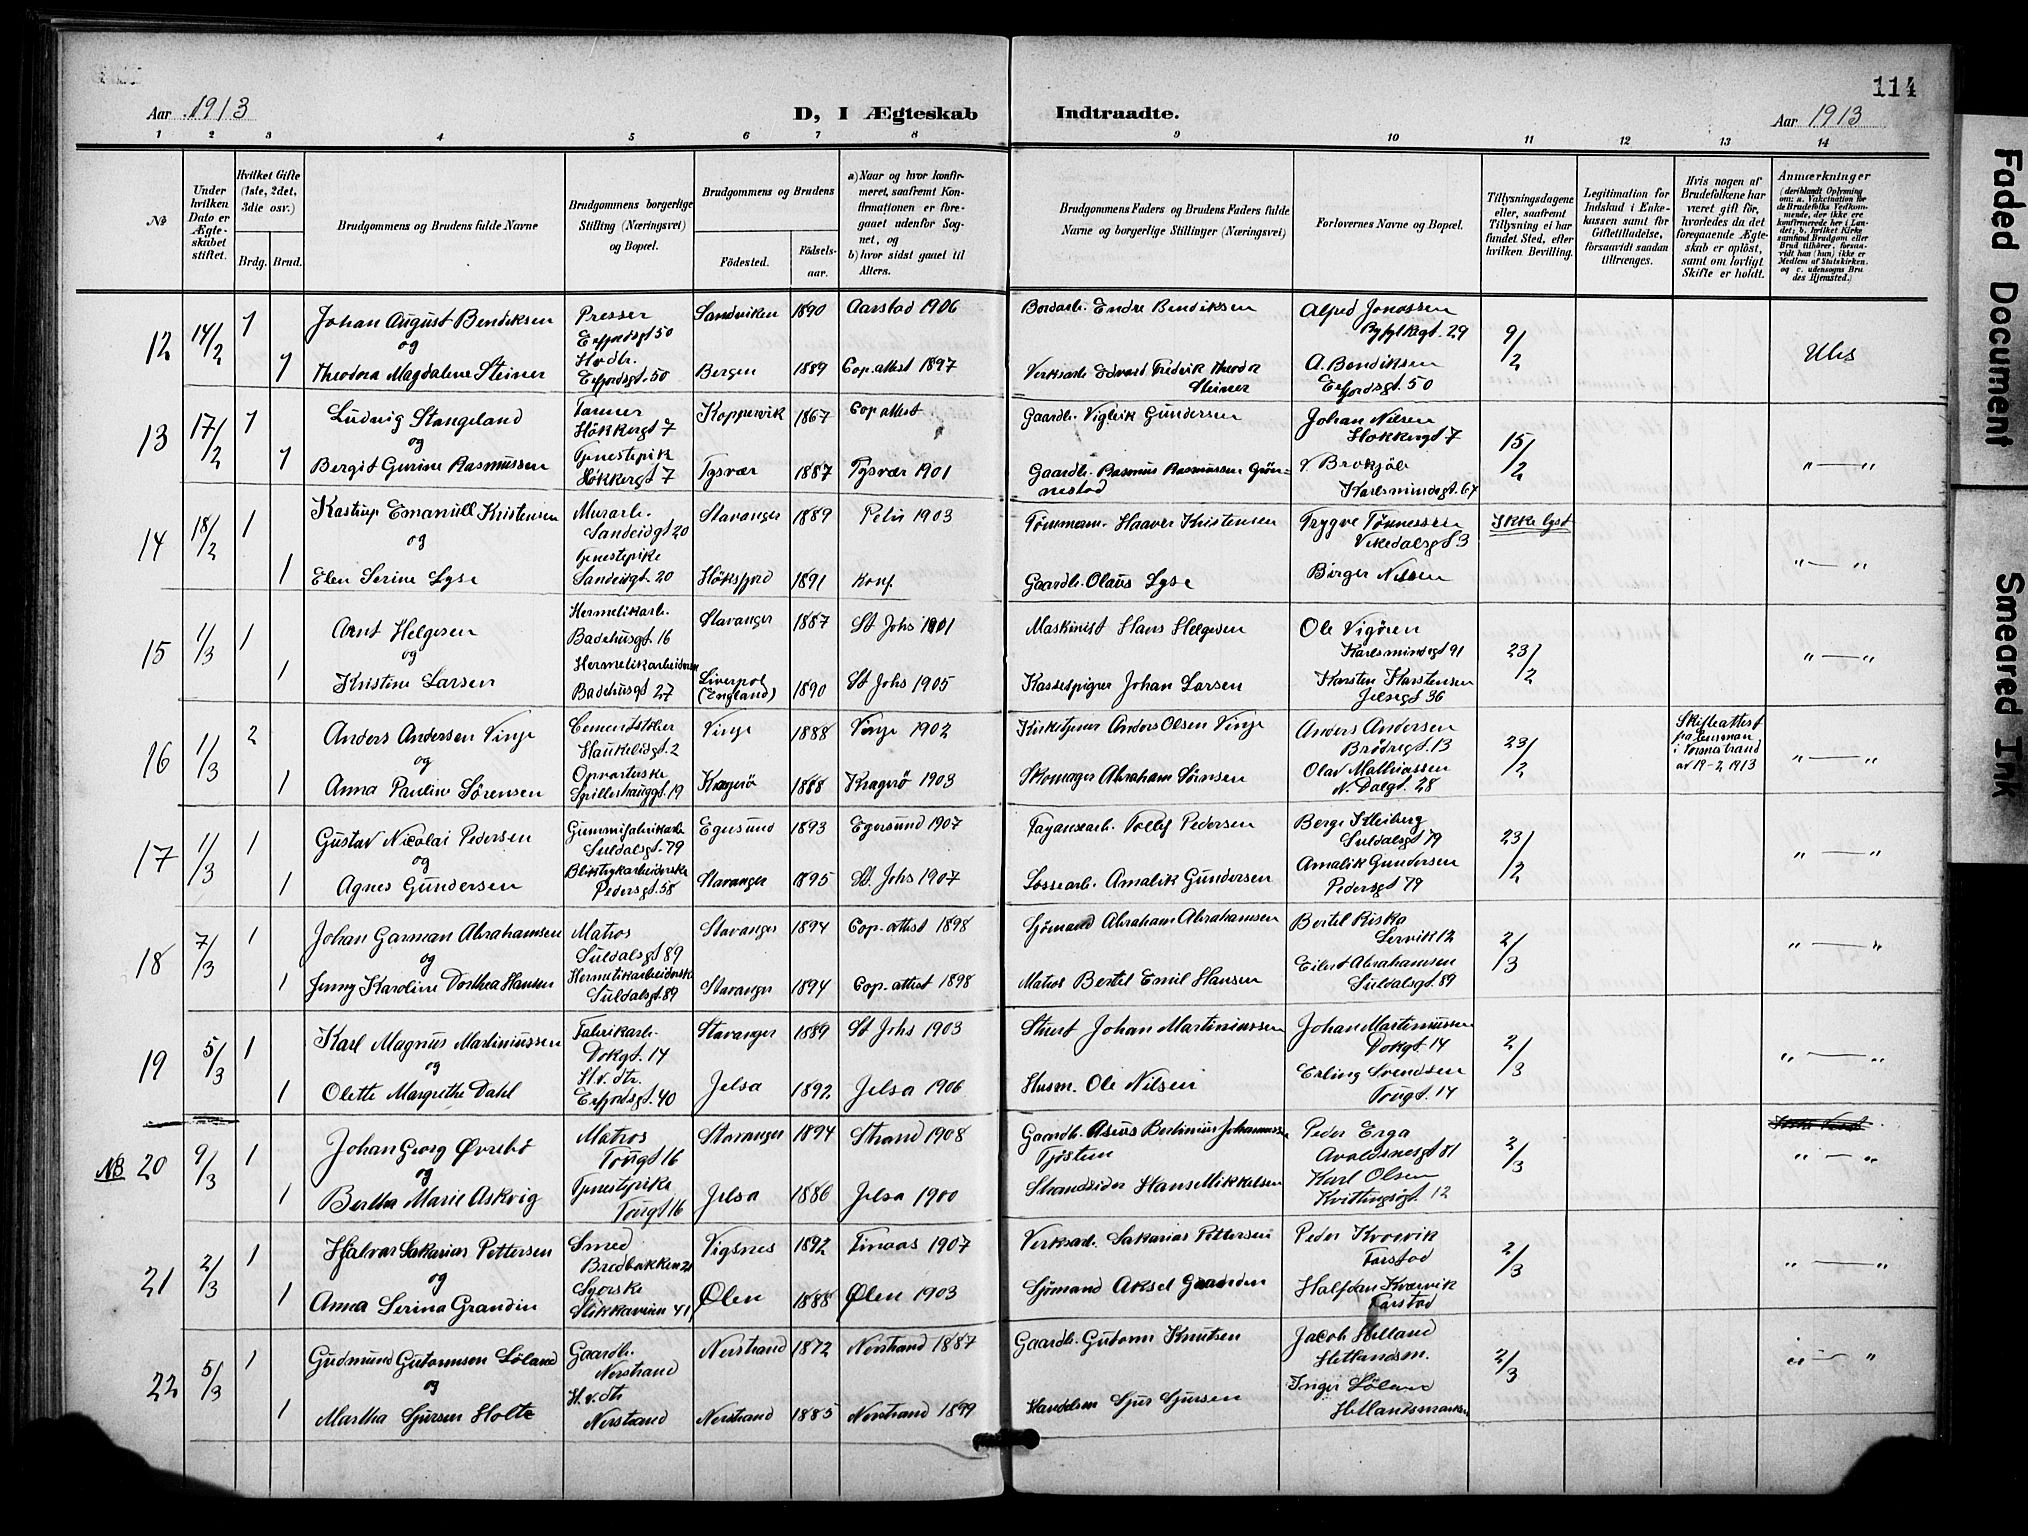 114
Aar 1913
D, I Ægteskab Indtraadte.
Aar 1913
1 2 3 4 5 6 7 8 9 10 11 12 13 14
No
Under hvilken Dato er Ægteskabet stiftet.
Hvilket Gifte (1ste, 2det, 3die osv.)
Brdg. Brud.
Brudgommens og Brudens fulde Navne
Brudgommens borgerlige Stilling (Næringsvei) og Bopæl.
Brudgommens og Brudens
Födested.
Födselsaar.
a) Naar og hvor konfirmeret, saafremt Konfirmationen er foregaaet udenfor Sognet, og
b) hvor sidst gaaet til Alters.
Brudgommens Faders og Brudens Faders fulde Navne og borgerlige Stillinger (Næringsvei)
Forlovernes Navne og Bopæl.
Tillysningsdagene eller, saafremt Tillysning ei har fundet Sted, efter hvilken Bevilling.
Legitimation for Indskud i Enkekassen samt for Giftetilladelse, forsaavidt saadan tiltrænges.
Hvis nogen af Brudefolkene har været gift för, hvorledes da det foregaaende Ægteskab er oplöst, samt om lovligt Skifte er holdt.
Anmærkninger
12 14/2 1 Johan August Bendiksen Presser Erfjordsgt 50 Sandviken 1890 Aarstad 1906 Bordarb. Endre Bendiksen Alfred Jonassen Ryfylkegt. 29 9/2
og
1 Theodora Magdalene Steiner Erfjordsgt. 50 Bergen 1889 Cop. attest 1897 Verksarb. Edvard Fredrik Theodor Steiner A. Bendiksen Erfjordsgt. 50
13 17/2 1 Ludvig Stangeland Høkkergt 7 Koppervik 1867 Cop attest Gaardb. Vigleik Gundersen Johan Nilsen Høkkergt 7 15/2 " — "
og
1 Bergit Gurine Rasmussen Tjenestepik Høkkergt 7 Tysvær 1887 Tysvær 1901 Gaardb. Rasmus Rasmussen Grønnestad Karlsmindegt. 67
14 18/2 1 Kastrup Emanuell Kristensen Murarb. Sandeidgt 20 Stavanger 1889 Petri 1903 Tømmerm. Haaver Kristensen Trygve Tønnessen Vikedalsgt 3 Ikke lyst " — "
og
1 Elen Serine Lyse Tjenestepike Sandeidgt. 20 Høksfjord 1891 Konf. Gaardb. Olaus Lyse Birger Nilsen
15 1/3 1 Arnt Helgesen Hermetikarb. Badehusgt. 16 Stavanger 1887 St Johs 1901 Maskinist Hans Helgesen Ole Vigören Karlsmindegt 91 23/2 " — "
og
1 Kristine Larsen Hermetikarbeiderske Badehusgt 27 Liverpol (England) 1890 St Johs 1905 Johan Larsen Karsten Karstensen Jelsegt 36
16 1/3 2 Anders Andersen Vinje Haukelidgt. 2 Vinje 1888 Vinje 1902 Kirketjener Anders Olsen Vinje Anders Andersen Brödregt. 13 23/2 Skifteattest fra Lensman i Nerstrand av 19-2 1913 " — "
og
1 Anna Pauline Sörensen Opvarterske Spilleshauggt. 19 Kragerö 1888 Kragerö 1903 Skomager Abraham Sörensen Olav Mathiassen N. Dalgt. 28
17 1/3 1 Gustav Nicolai Pedersen Gummifabrikarb. Suldalsgt. 79 Egersund 1893 Egersund 1907 Fayansearb. Tollef Pedersen Berge Kleiberg Suldalsgt 79 23/2 " — "
og
1 Agnes Gundersen Pedersgt 58 Stavanger 1895 St. Johs 1907 Lossearb. Amalik Gundersen Amalik Gundersen Pedersgt 79
18 7/3 1 Johan Garman Abrahamsen Matros Suldalsgt 89 Stavanger 1894 Cop. attest 1898 Sjømand Abraham Abrahamsen Bertel Riska Lervik 12 2/3 " — "
og
1 Jenny Karoline Dorthea Hansen Hermetikarbeiderske Suldalsgt. 89 Stavanger 1894 Cop. attest 1898 Matros Bertel Emil Hansen Eilert Abrahamsen Suldalsgt. 89
19 5/3 1 Karl Magnus Martiniussen Fabrikarb. Dokgt. 14 Stavanger 1889 St Johs 1903 Stuert Johan Martiniussen Johan Martiniussen Dokgt. 14 2/3 " — "
og
1 Olette Margrethe Dahl H.v. dtr. Erfjordsgt. 40 Jelsa 1892 Jelsa 1906 Husm. Ole Nilsen Erling Svendsen Tougt. 14
NB 20 9/3 1 Johan Georg Øvrebø Matros Tougt 16 Stavanger 1894 Strand 1908 Gaardb. Asius Bertinius Johannessen Tjøstem Peder Erga Avaldsnesgt 81 2/3 " — "
og
1 Bertha Marie Askvig Tjenestepike Tougt 16 Jelsa 1886 Jelsa 1900 Strandsider Hans Mikkelsen Karl Olsen Kvittingsøgt. 12
21 2/3 1 Hjalmar Sakarias Pettersen Smed Bredbakken 21 Vigsnes 1892 Tinaas 1907 Verksarb. Sakarias Pettersen Peder Kvævik Farstad 2/3 " — "
og
1 Anna Serina Grandin Syerske Stikkaveien 41 Ølen 1888 Ølen 1903 Sjømand Aksel Grandin Halfdan Kvævik Farstad
22 5/3 1 Gudmund Gutormsen Löland Gaardb. Nerstrand Nerstrand 1872 Nerstrand 1887 Gaardb. Gutorm Knutsen Jacob Helland Hetlandsm. 2/3 " — "
og
1 Martha Sjursen Holte H.v. dtr Nerstrand Nerstrand 1885 Nerstrand 1899 Sjur Sjursen Inger Löland Hetlandsmarken
Faded Document
Smeared Ink